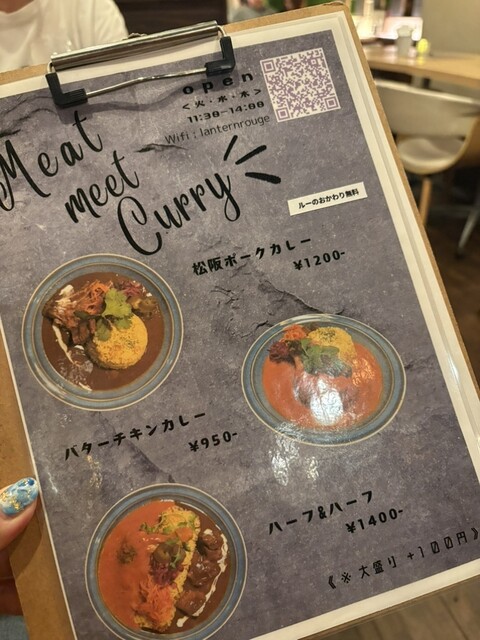 open
<火・水・木>
11:30-14:00
Wifi : lanternrouge
Meat
meet
Curry
ルーのおかわり無料
松阪ポークカレー
¥1200-
バターチキンカレー
¥950-
ハーフ&ハーフ
¥1400-
《※大盛り +100円